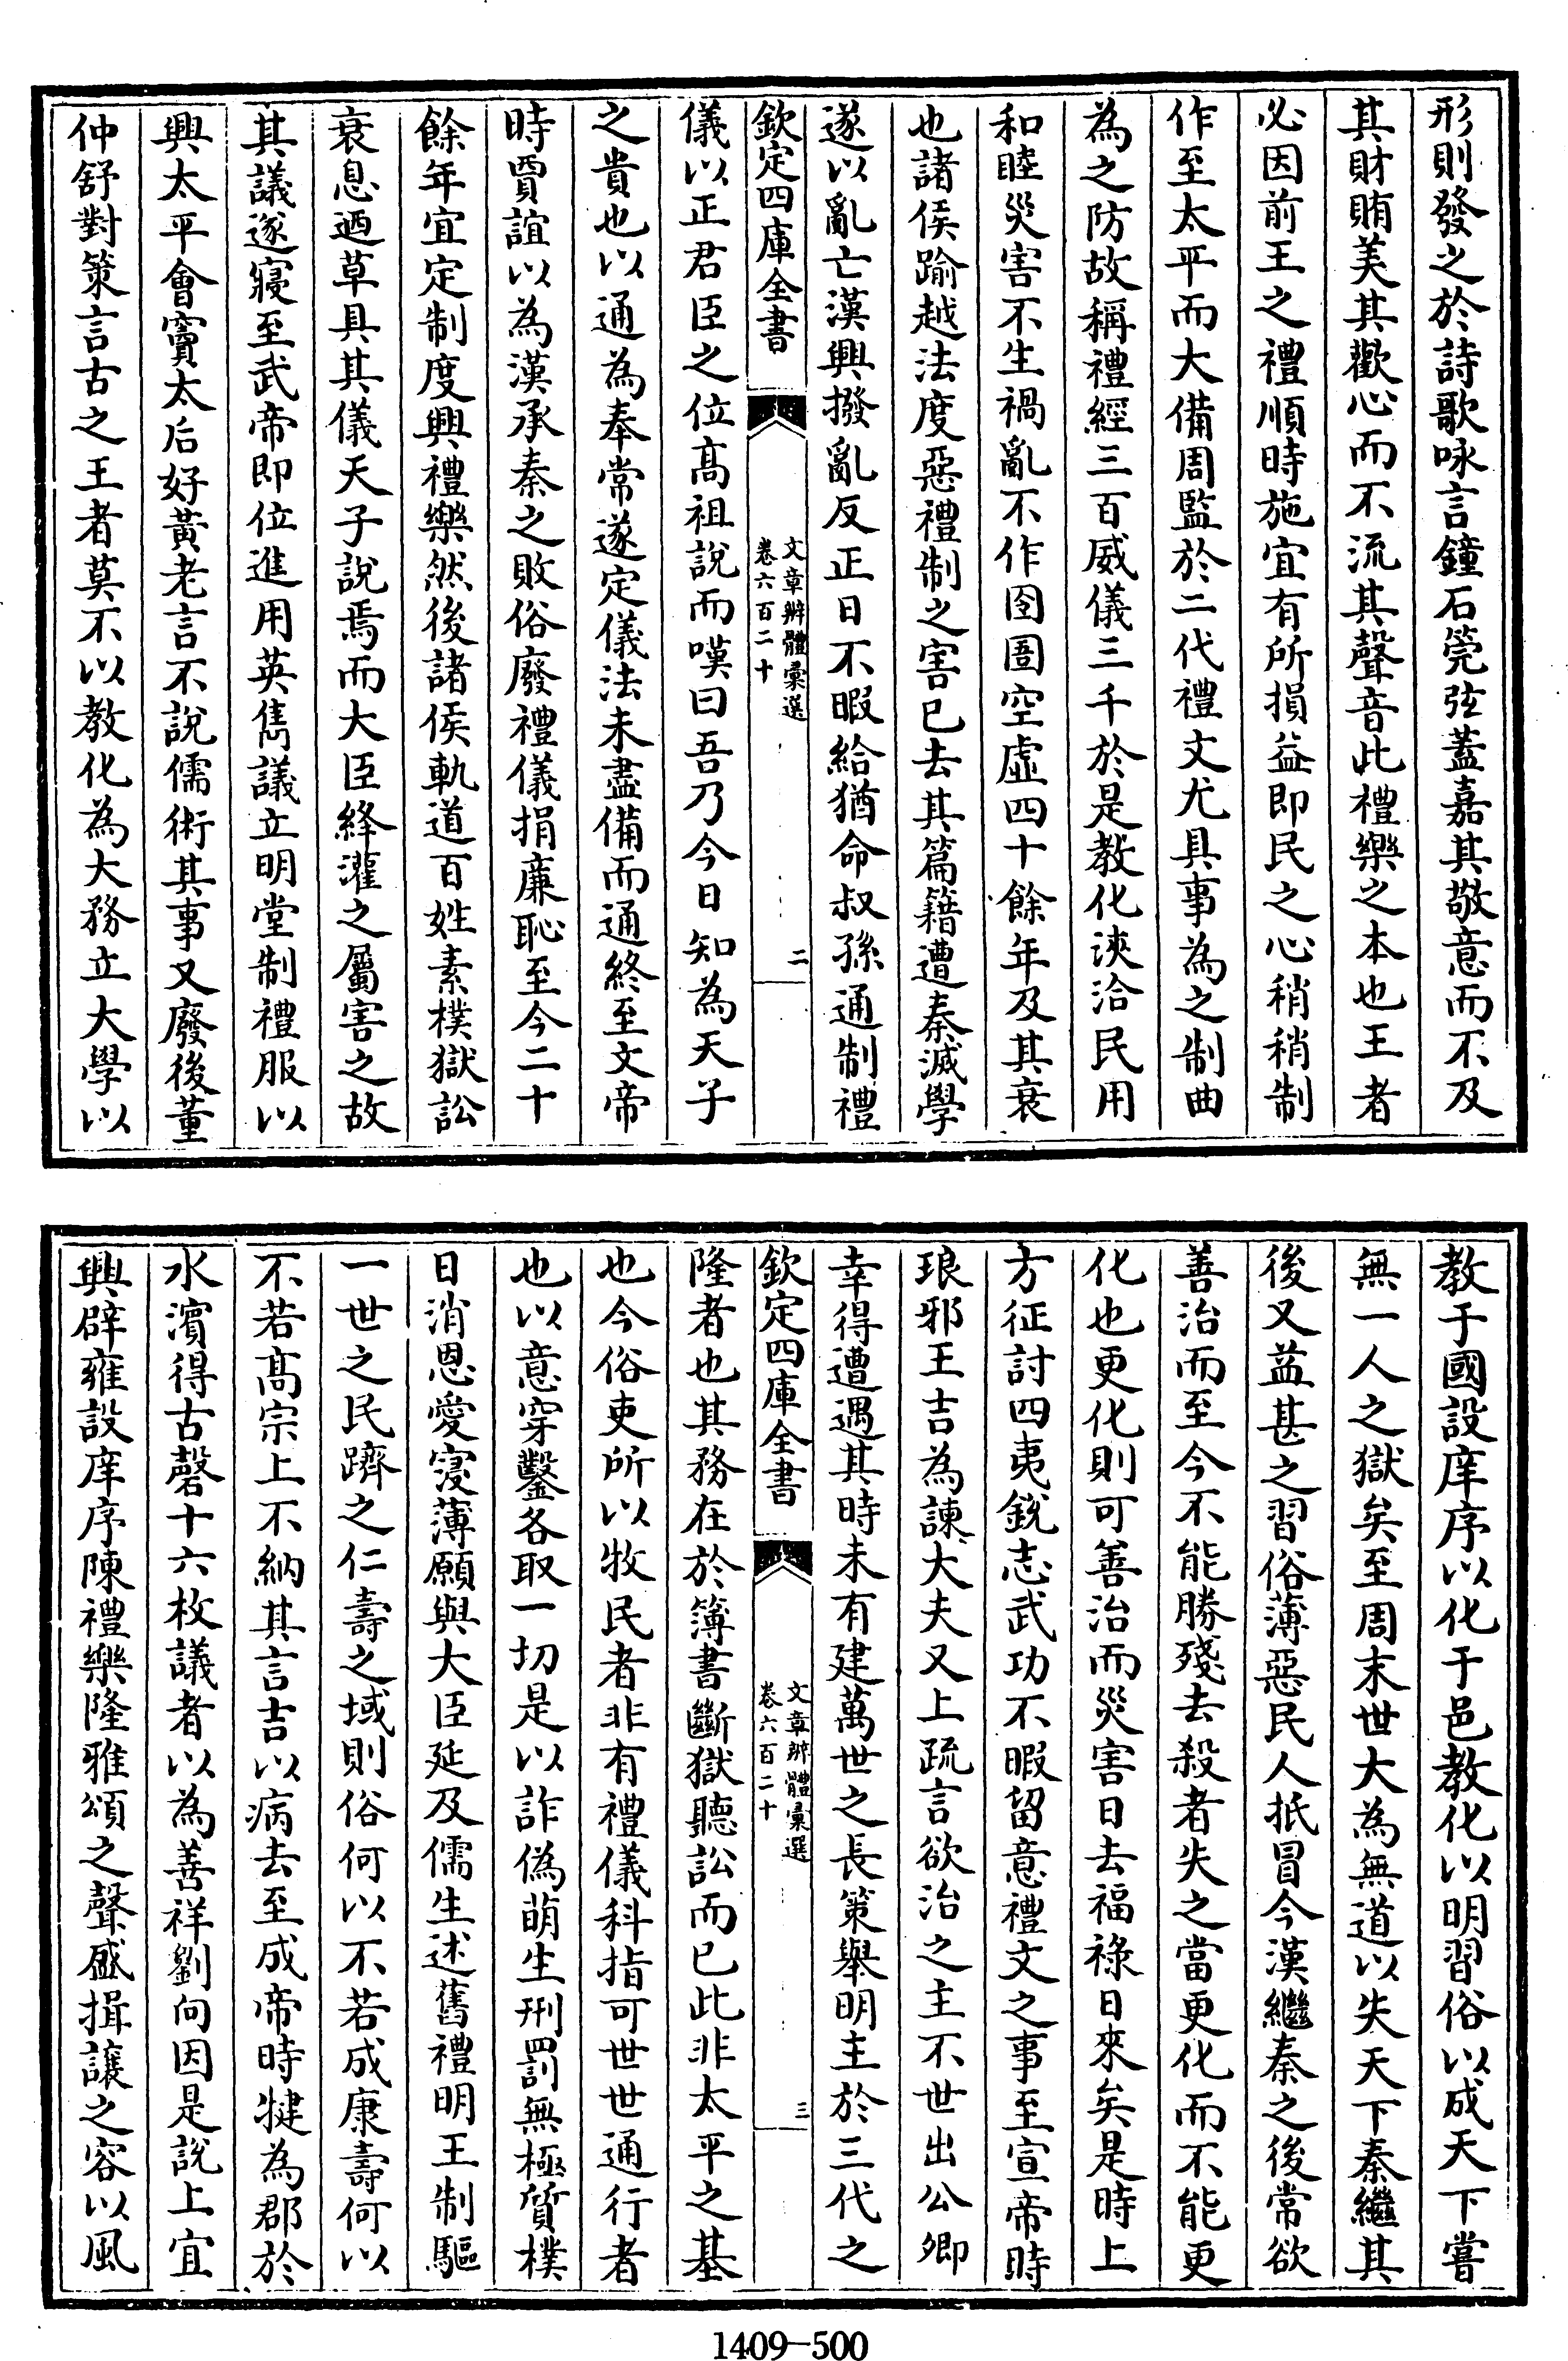 形則發之於詩歌咏言鐘石筦弦蓋嘉其敬意而不及
其財賄美其歡心而不流其聲音此禮樂之本也王者
必因前王之禮順時施宜有所損益即民之心稍稍制
作至太平而大備周監於二代禮文尤具事為之制曲
為之防故稱禮經三百威儀三千於是教化浹洽民用
和睦災害不生禍亂不作囹圄空虛四十餘年及其衰
也諸侯踰越法度惡禮制之害已去其篇籍遭秦滅學
遂以亂亡漢興撥亂反正日不暇給猶命叔孫通制禮
欽定四庫全書
文章辨體彙選
卷六百二十
二
儀以正君臣之位髙祖說而嘆曰吾乃今日知為天子
之貴也以通為奉常遂定儀法未盡備而通終至文帝
時賈誼以為漢承秦之敗俗廢禮儀捐廉恥至今二十
餘年宜定制度興禮樂然後諸侯軌道百姓素樸獄訟
衰息廼草具其儀天子說焉而大臣絳灌之屬害之故
其議遂寢至武帝即位進用英雋議立明堂制禮服以
興太平會竇太后好黃老言不說儒術其事又廢後董
仲舒對策言古之王者莫不以教化為大務立大學以
教于國設庠序以化于邑教化以明習俗以成天下嘗
無一人之獄矣至周末世大為無道以失天下秦繼其
後又益甚之習俗薄惡民人抵冒今漢繼秦之後常欲
善治而至今不能勝殘去殺者失之當更化而不能更
化也更化則可善治而災害日去福祿日來矣是時上
方征討四夷銳志武功不暇留意禮文之事至宣帝時
琅邪王吉為諫大夫又上疏言欲治之主不世出公卿
幸得遭遇其時未有建萬世之長策舉明主於三代之
欽定四庫全書
文章辨體彙選
卷六百二十
三
隆者也其務在於簿書斷獄聽訟而已此非太平之基
也今俗吏所以牧民者非有禮儀科指可世世通行者
也以意穿鑿各取一切是以詐偽萌生刑罰無極質樸
日消恩愛寖薄願與大臣延及儒生述舊禮明王制驅
一世之民躋之仁壽之域則俗何以不若成康壽何以
不若髙宗上不納其言吉以病去至成帝時犍為郡於
水濱得古磬十六枚議者以為善祥劉向因是說上宜
興辟雍設庠序陳禮樂隆雅頌之聲盛揖讓之容以風
1409-500